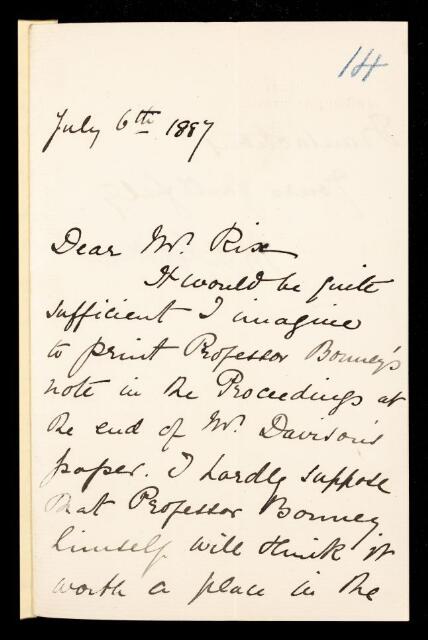 14
July 6th 1887
Dear Mr. Rix
It would be quite
sufficient I imagine
to print Professor Bonney's
note in the Proceedings at
the end of Mr. Davison's
paper. I hardly suppose
that Professor Bonney
himself will think it
worth a place in the